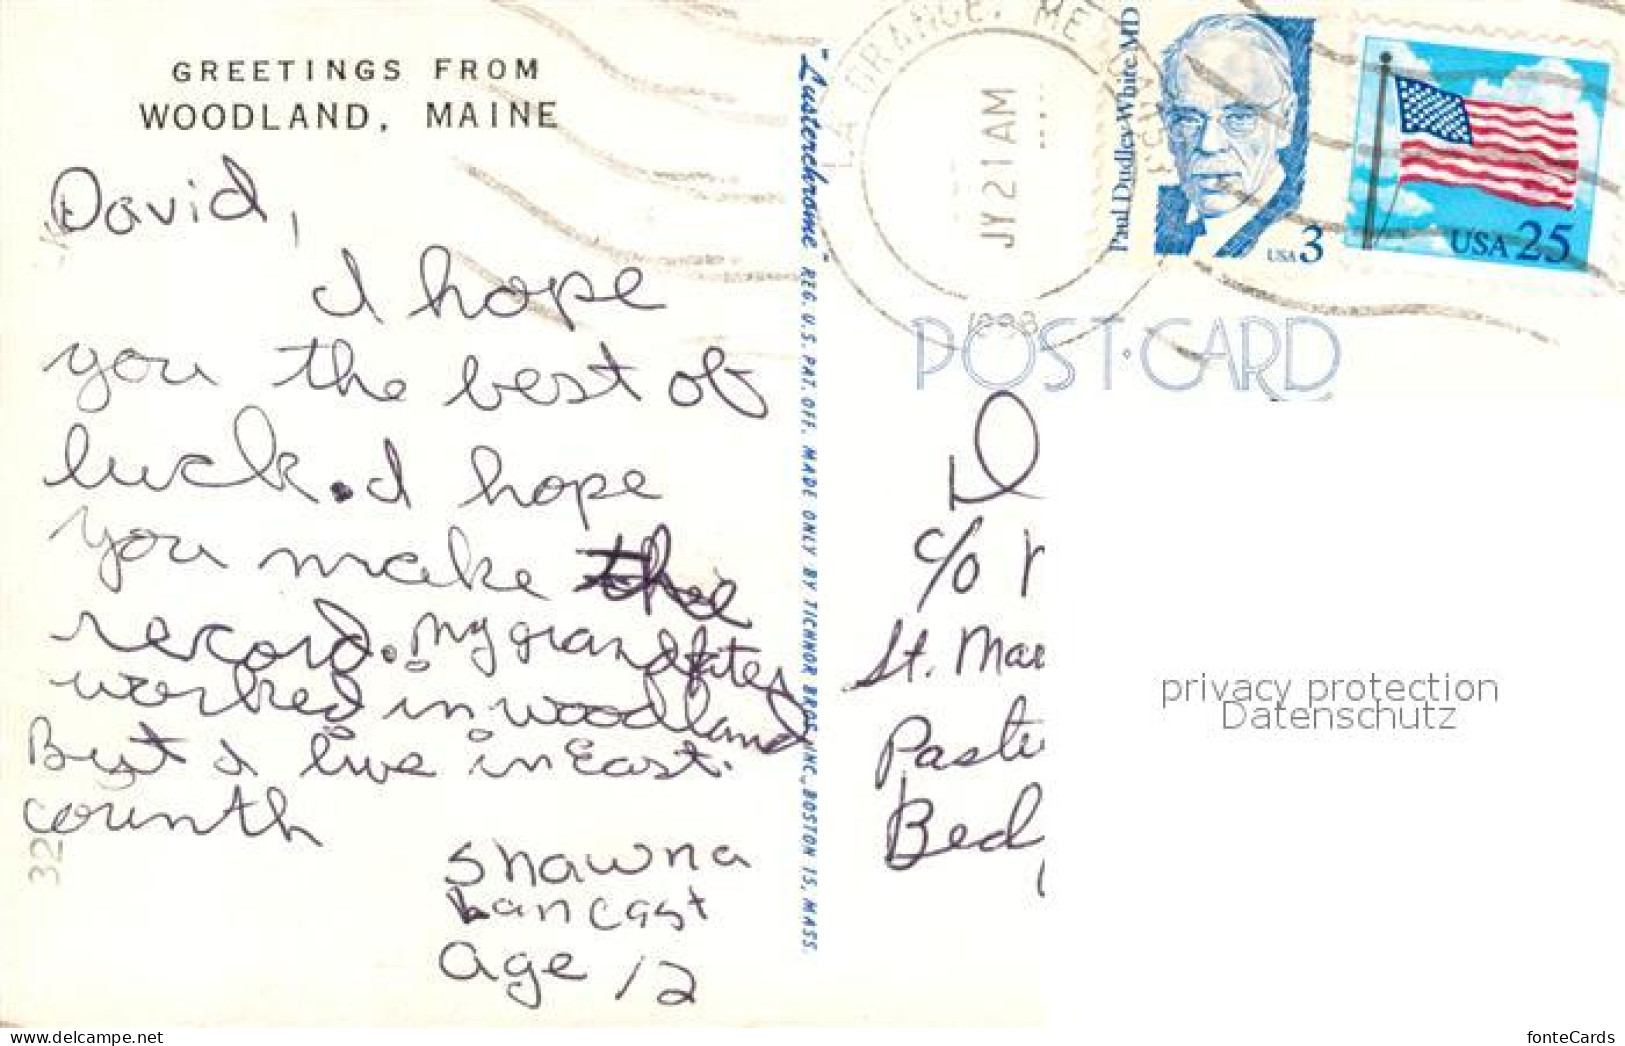 GREETINGS FROM
WOODLAND, MAINE
David,
I hope
you the best of
luck. I hope
you make the
record. My grandfater
worked in woodland
But I live in East
corinth
Shawna
Lancast
age 12
32
"Lusterchrome" REG. U.S. PAT. OFF. MADE ONLY BY TICHNOR BROS. INC., BOSTON 15, MASS.
LA GRANGE, ME
JY 21 AM
1988
Paul Dudley White MD
USA 3
USA 25
POST·CARD
D
c/o
St. Mar
Paste
Bed
privacy protection
Datenschutz
fonteCards